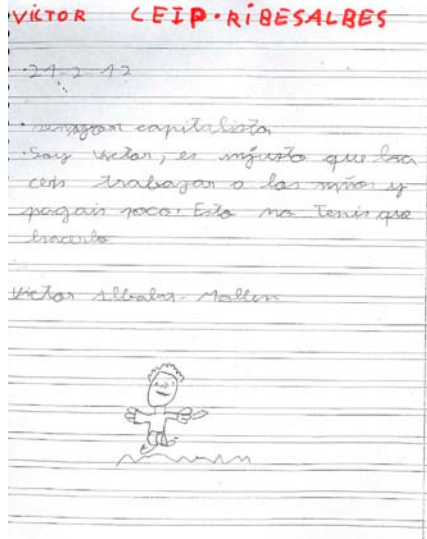 VICTOR CEIP·RIBESALBES
·21-2-12
capitalista
·Soy victor, es injusto que ha
ceis trabajar a los niños y
pagais poco. Esto no Tenis que
hacerlo
Victor Mallen